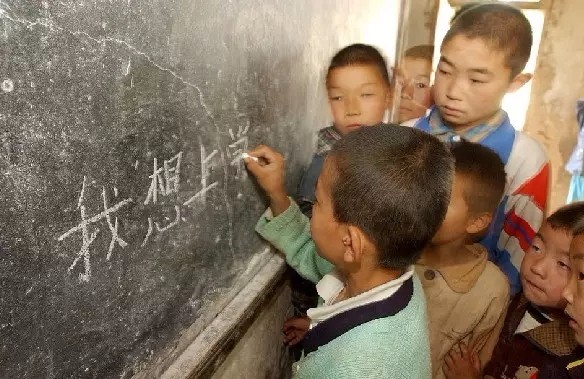 我想上学